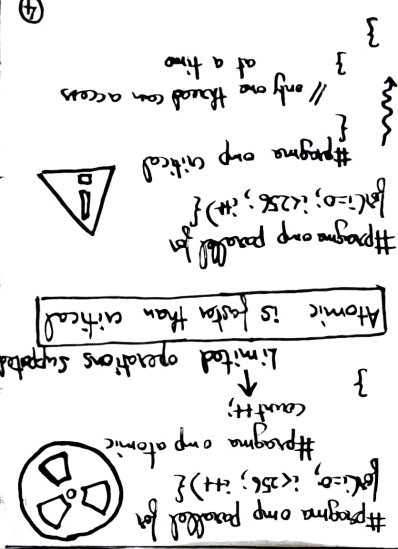 #pragma omp parallel for
for(i=0; i<256; i++){
#pragma omp atomic
count++;
}
Limited operations supported
Atomic is faster than critical
#pragma omp parallel for
for(i=0; i<256; i++){
#pragma omp critical
{
// only one thread can access
at a time
}
}
4